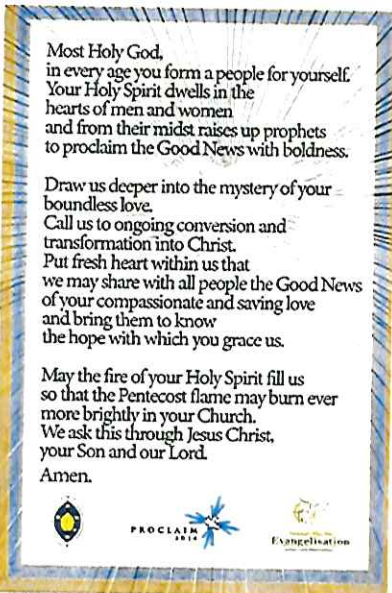 Most Holy God,
in every age you form a people for yourself.
Your Holy Spirit dwells in the
hearts of men and women
and from their midst raises up prophets
to proclaim the Good News with boldness.
Draw us deeper into the mystery of your
boundless love.
Call us to ongoing conversion and
transformation into Christ.
Put fresh heart within us that
we may share with all people the Good News
of your compassionate and saving love
and bring them to know
the hope with which you grace us.
May the fire of your Holy Spirit fill us
so that the Pentecost flame may burn ever
more brightly in your Church.
We ask this through Jesus Christ,
your Son and our Lord.
Amen.
PROCLAIM
Evangelisation